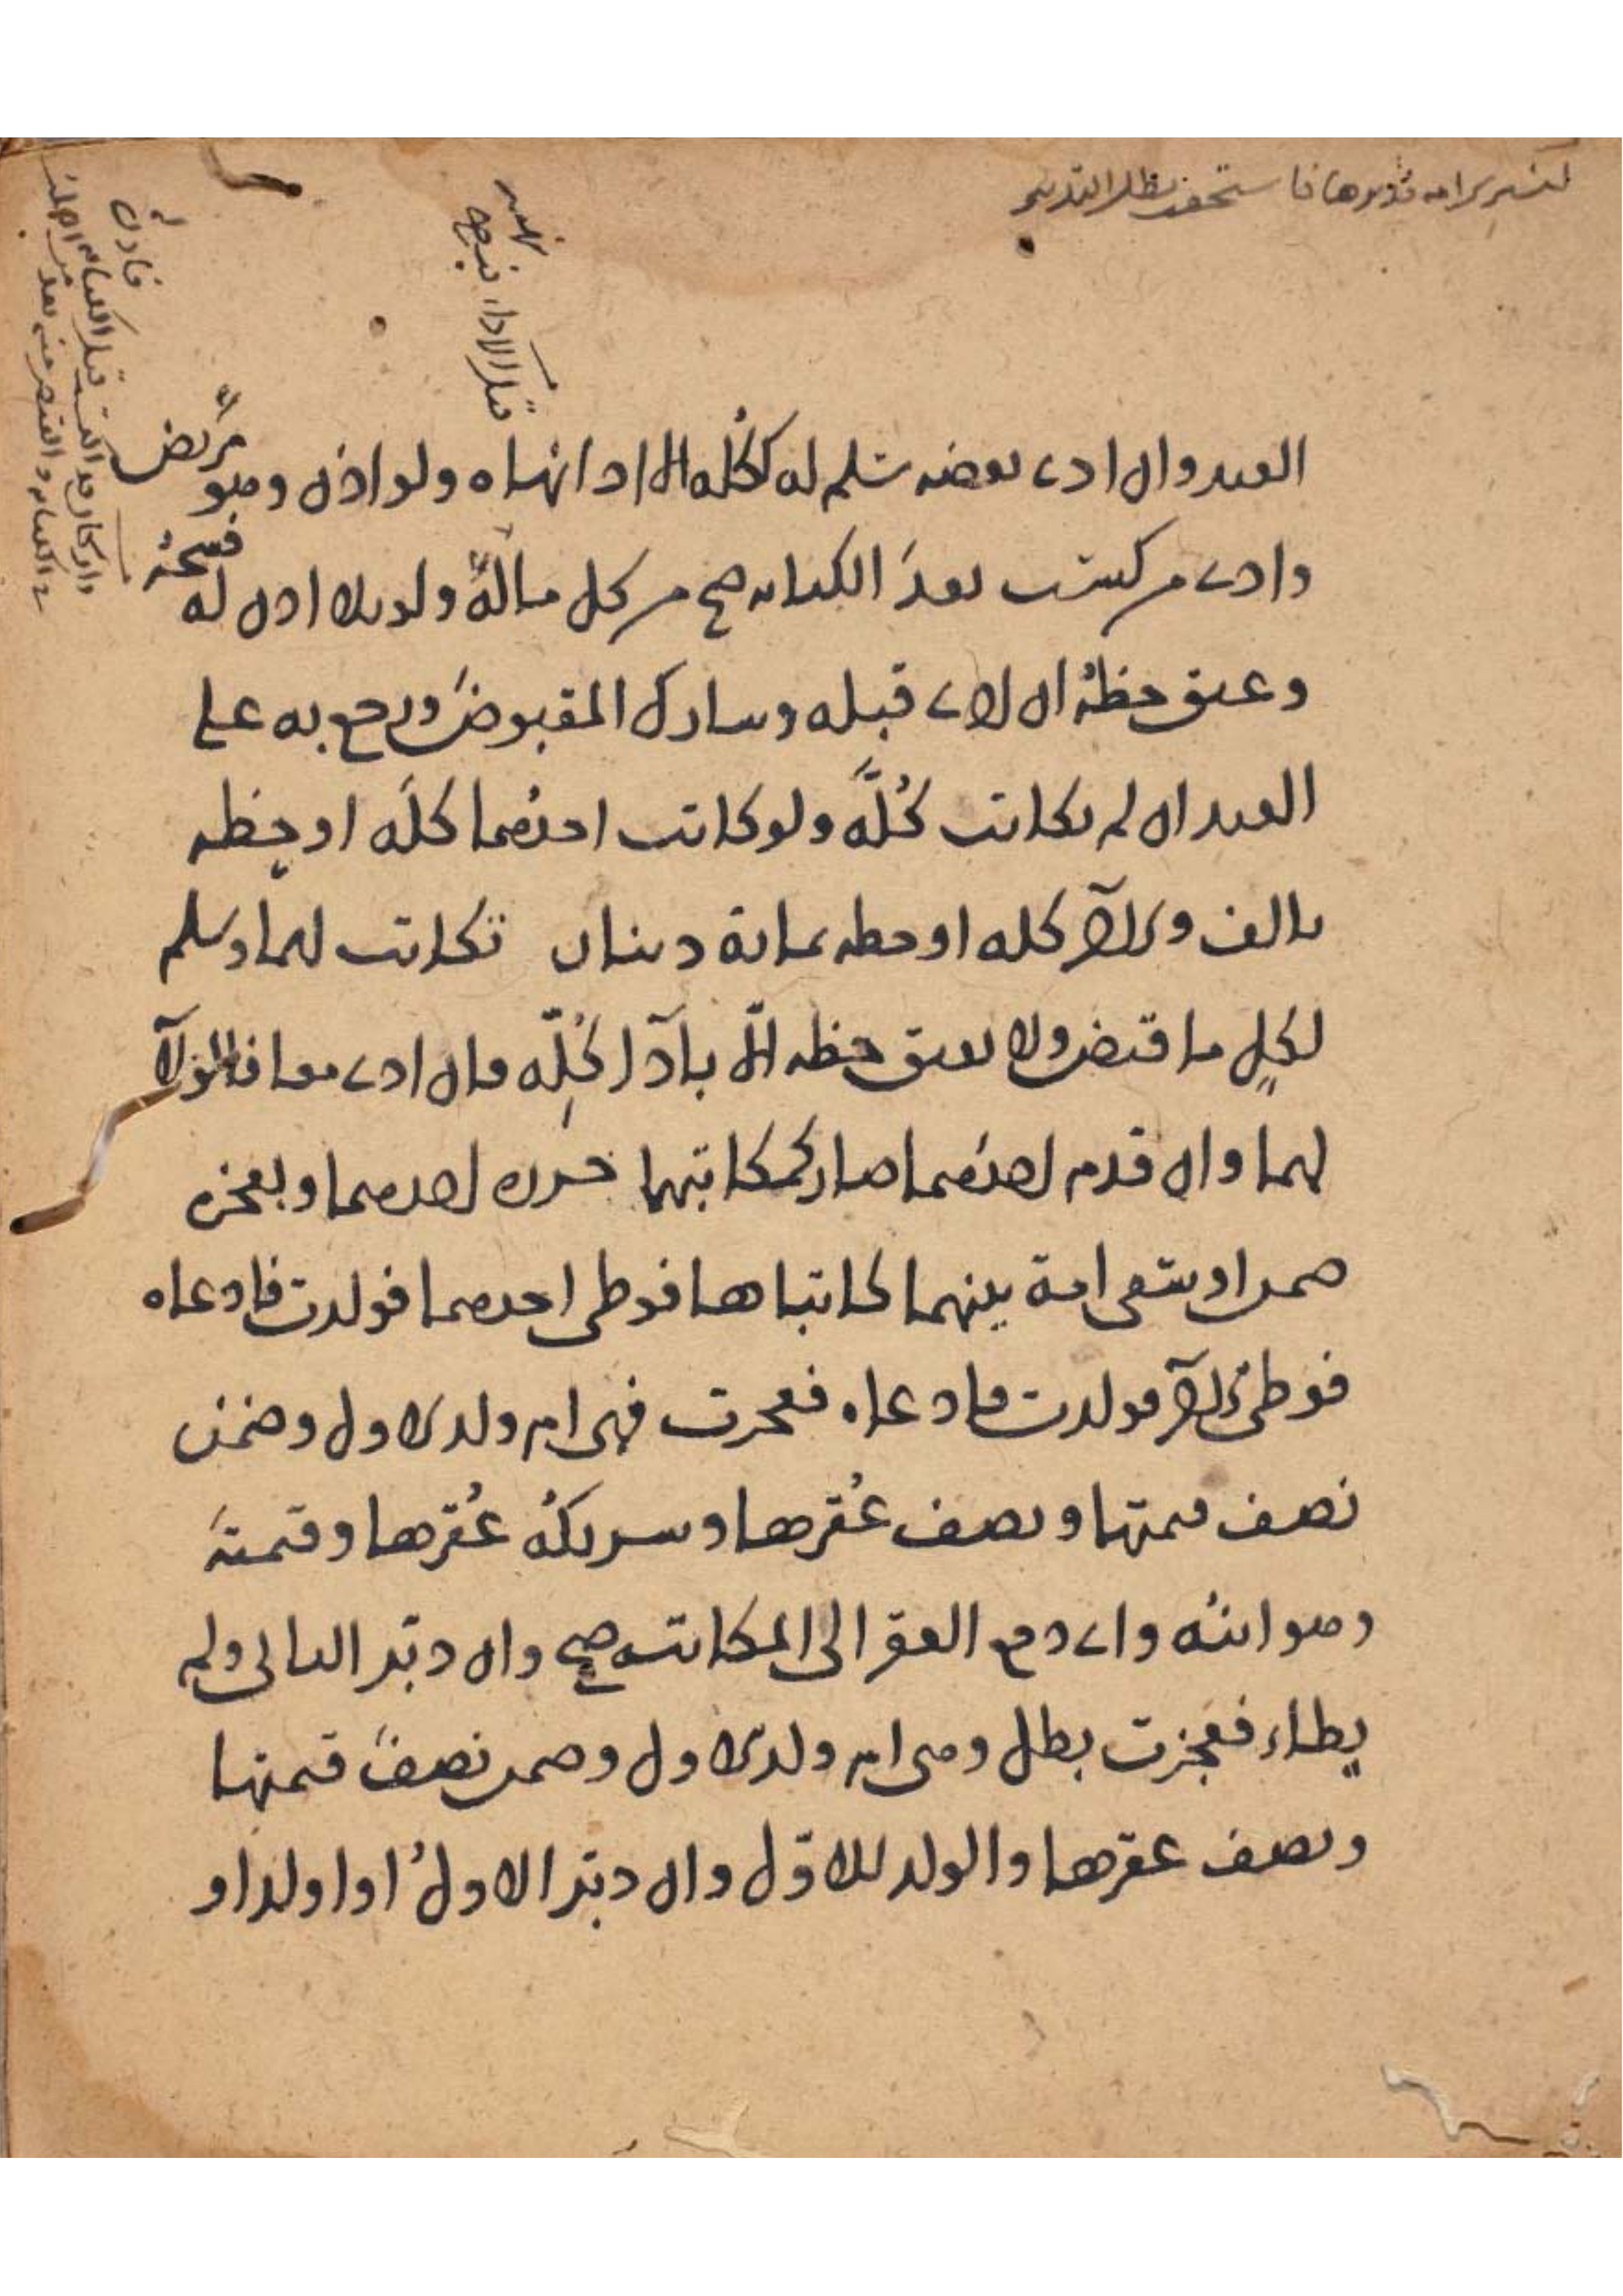 العبد وان ادى بعضه سلم له كله الا اذا نهاه ولو اذن وهو مريض
وادى من كسب بعد الكتابه صح من كل ماله ولو بلا اذن له فسخه
وعتق حظه ان ادى قبله وشارك المقبوض ورجع به على
العبد ان لم يكاتب كله ولو كاتب احدهما كله او حظه
بالف والاخر كله او حظه بمائة دينار تكاتب لهما وسلم
لكل ما قبض ولا يعتق حظه الا بادآ كله وان ادى معا فالولآ
لهما وان قدم احدهما صار كمكاتبهما حرره احدهما وبعجزه
ضمن او سعى امة بينهما كاتباها فوطى احدهما فولدت فادعاه
فوطى الاخر فولدت فادعاه فعجزت فهى ام ولد الاول وضمن
نصف قيمتها ونصف عُقرها وشريكُه عُقرها وقيمتَه
وهو ابنُه واى دفع العقر الى المكاتب صح وان دبّر الثانى ولم
يطاء فعجزت بطل وهى ام ولد الاول وضمن نصفَ قيمتها
ونصف عقرها والولد للاوّل وان دبّر الاولُ او اولد او
قبل الاداء